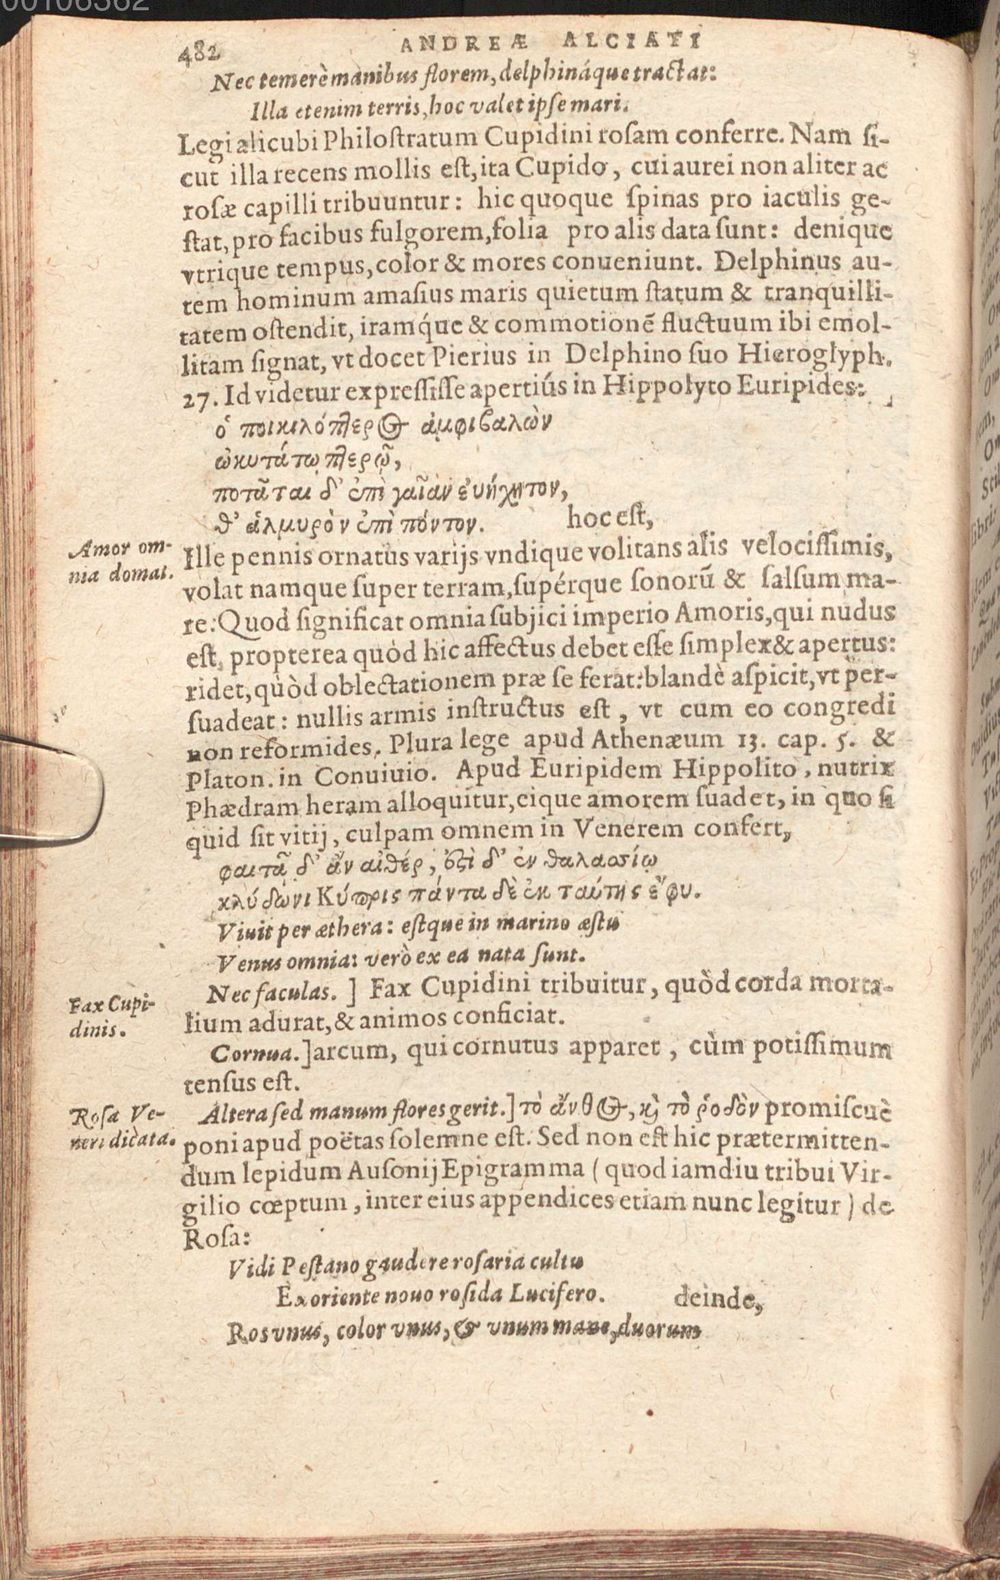 00106362
482 ANDREÆ ALCIATI
Nec temerè manibus florem, delphináque tractat:
Illa etenim terris, hoc valet ipse mari.
Legi alicubi Philostratum Cupidini rosam conferre. Nam si-
cut illa recens mollis est, ita Cupido, cui aurei non aliter ac
rosæ capilli tribuuntur: hic quoque spinas pro iaculis ge-
stat, pro facibus fulgorem, folia pro alis data sunt: denique
vtrique tempus, color & mores conueniunt. Delphinus au-
tem hominum amasius maris quietum statum & tranquilli-
tatem ostendit, iramq́ue & commotionē fluctuum ibi emol-
litam signat, vt docet Pierius in Delphino suo Hieroglyph.
27. Id videtur expressisse apertiùs in Hippolyto Euripides:
ὁ ποικιλόπτερος ἀμφιβαλὼν
ὠκυτάτῳ πτερῷ,
ποτᾶται δ' ἐπὶ γαῖαν ἐυήχητον,
θ' ἁλμυρὸν ἐπὶ πόντον. hoc est,
Amor om-
nia domat.
Ille pennis ornatus varijs vndique volitans alis velocissimis,
volat namque super terram, supérque sonorū & salsum ma-
re: Quod significat omnia subjici imperio Amoris, qui nudus
est, propterea quòd hic affectus debet esse simplex & apertus:
ridet, quòd oblectationem præ se ferat: blandè aspicit, vt per-
suadeat: nullis armis instructus est, vt cum eo congredi
non reformides. Plura lege apud Athenæum 13. cap. 5. &
Platon. in Conuiuio. Apud Euripidem Hippolito, nutrix
Phædram heram alloquitur, eique amorem suadet, in quo si
quid sit vitij, culpam omnem in Venerem confert,
φαιτᾶ δ' ἂν αἰθέρ, ἔστι δ' ἐν θαλασσίῳ
κλύδωνι Κύπρις πάντα δὲ ἐκ ταύτης ἔφυ.
Viuit per æthera: estque in marino æstu
Venus omnia: verò ex ea nata sunt.
Fax Cupi-
dinis.
Nec faculas. ] Fax Cupidini tribuitur, quòd corda morta-
lium adurat, & animos conficiat.
Cornua. ] arcum, qui cornutus apparet, cùm potissimum
tensus est.
Rosa Ve-
neri dicata.
Altera sed manum flores gerit. ] τὸ ἄνθος, κὶ τὸ ῥοδὸν promiscuè
poni apud poëtas solemne est. Sed non est hic prætermitten-
dum lepidum Ausonij Epigramma ( quod iamdiu tribui Vir-
gilio cœptum, inter eius appendices etiam nunc legitur ) de
Rosa:
Vidi Pestano gaudere rosaria cultu
Exoriente nouo rosida Lucifero. deinde,
Ros vnus, color vnus, & vnum mane, duorum